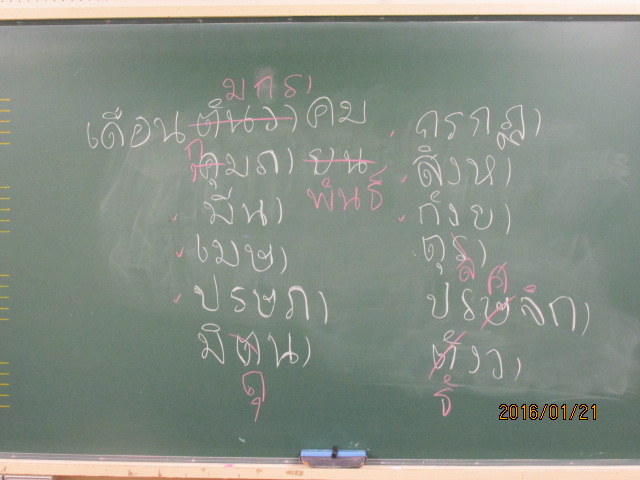 มกรา
เดือน ตันวา คม
กุมภา ยน
พันธ์
มีนา
เมษา
ปรษภา
มิตนา
ถุ
กรกฎา
สิงหา
กัง​ยา
ตุรา
ล
ศ
ปรษจิกา
ตังวา
ธั
2016/01/21